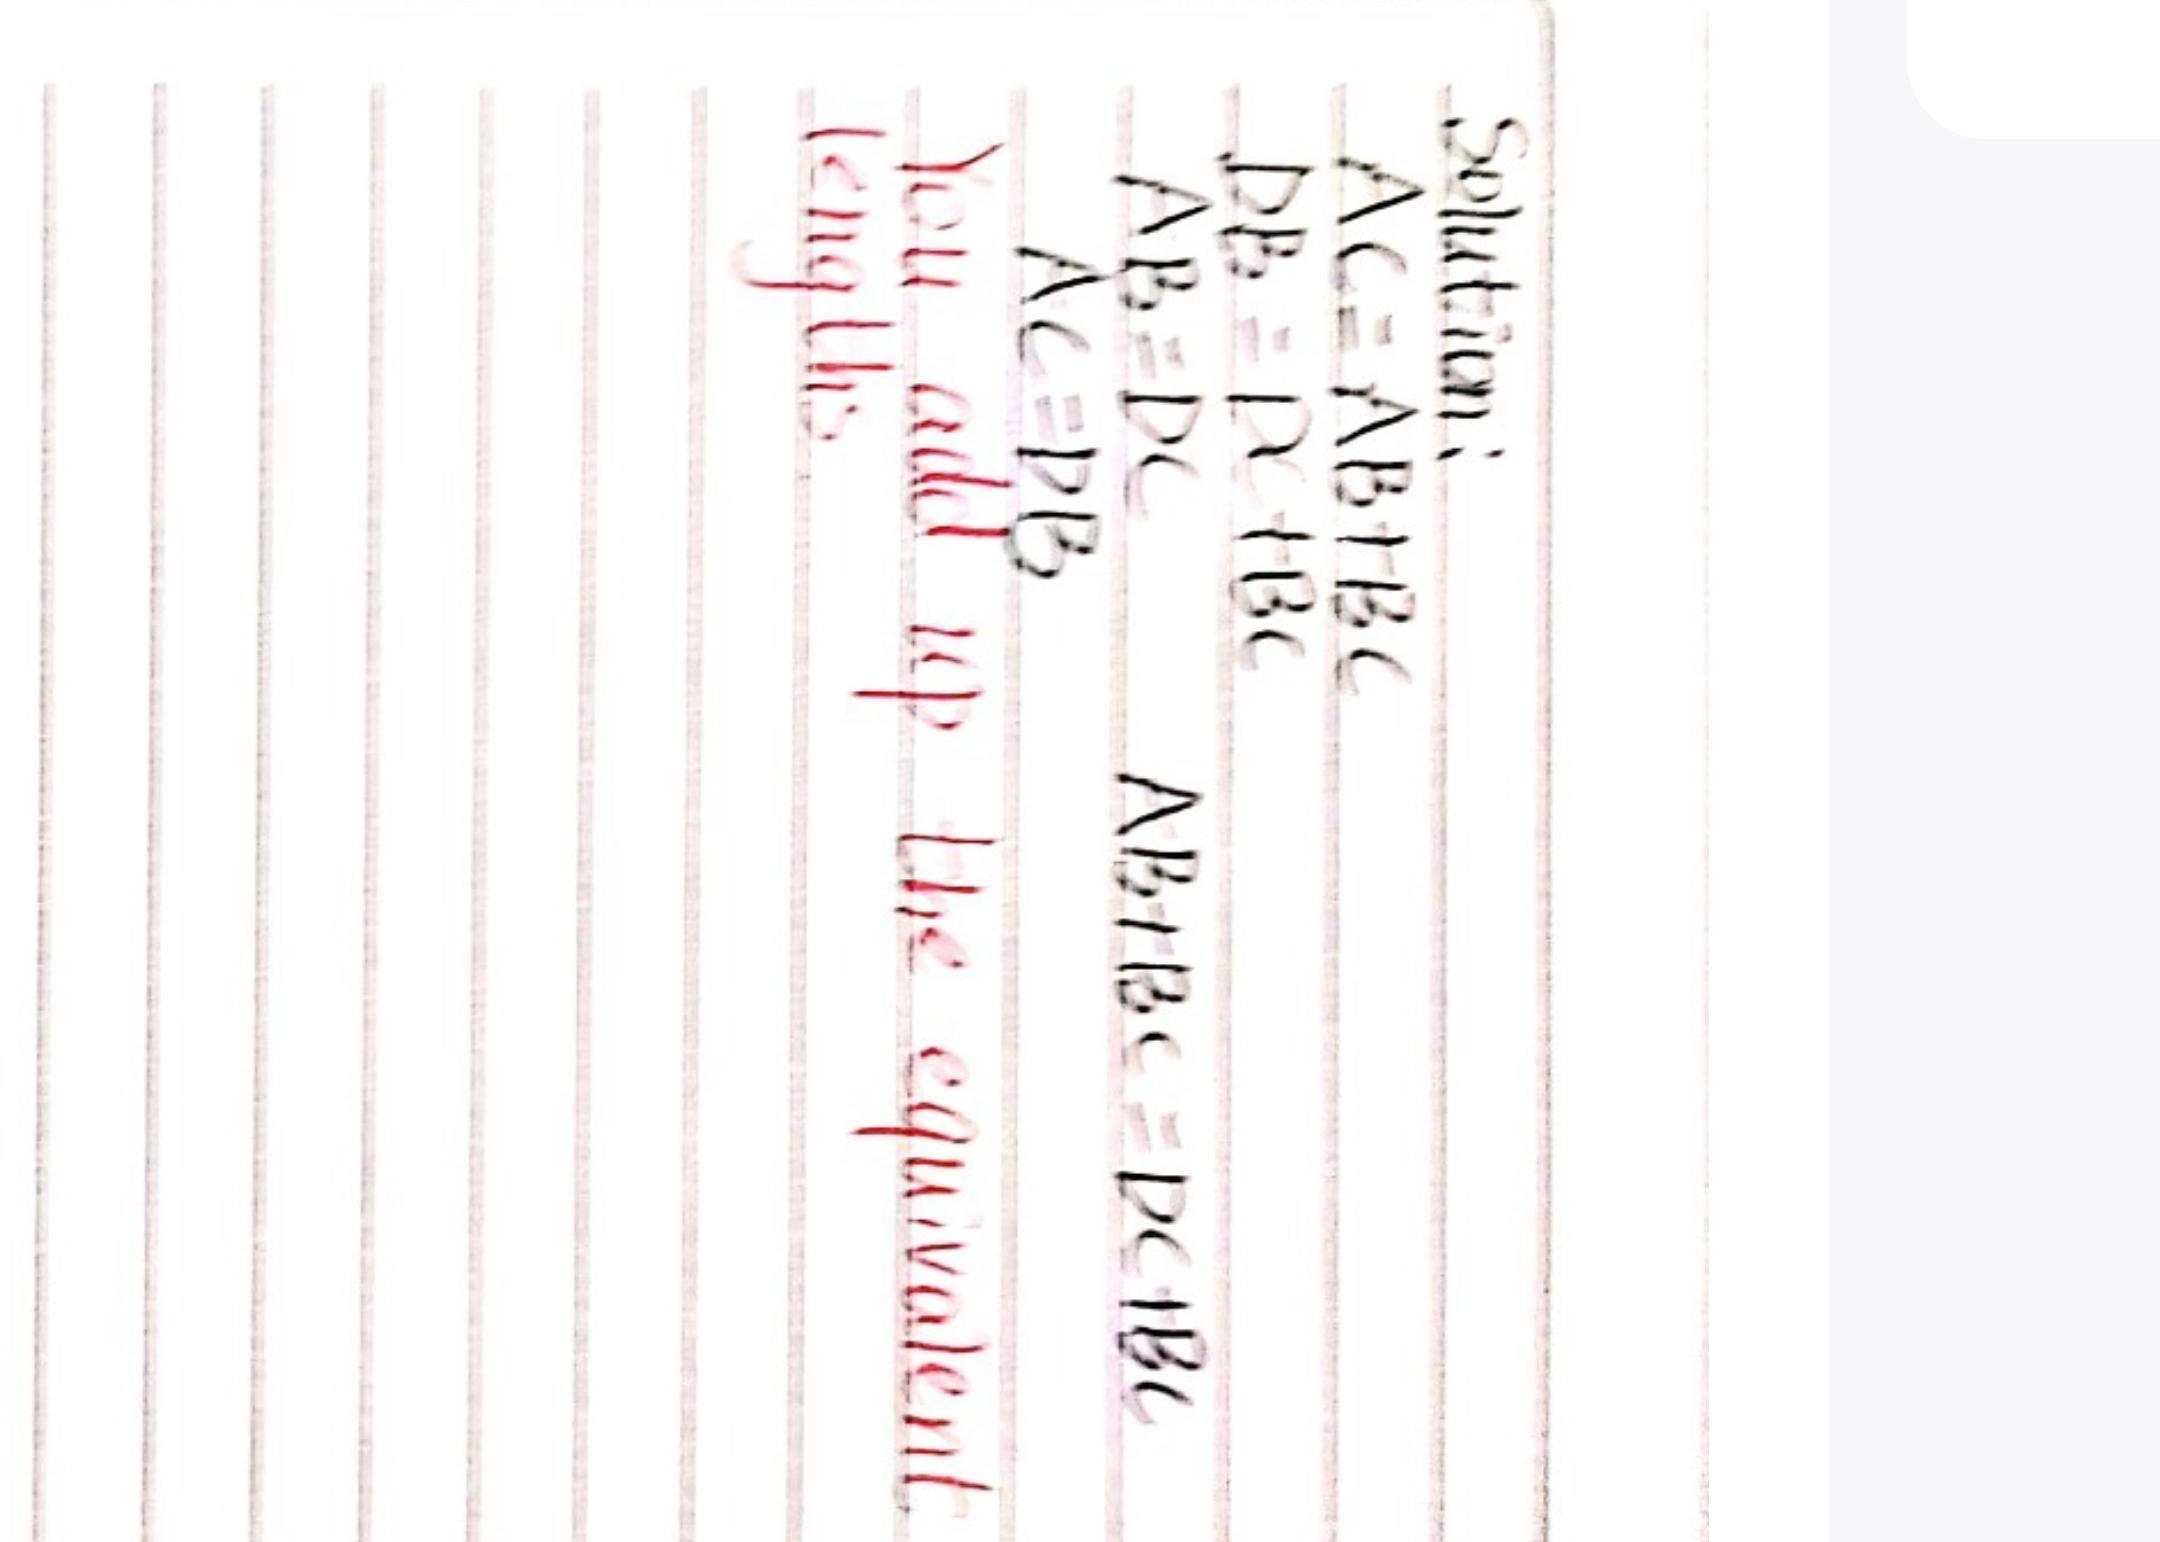 Solution:
AC=AB+BC
DB=DC+BC
AB=DC AB+BC=DC+BC
AC=DB
You add up the equivalent
lengths